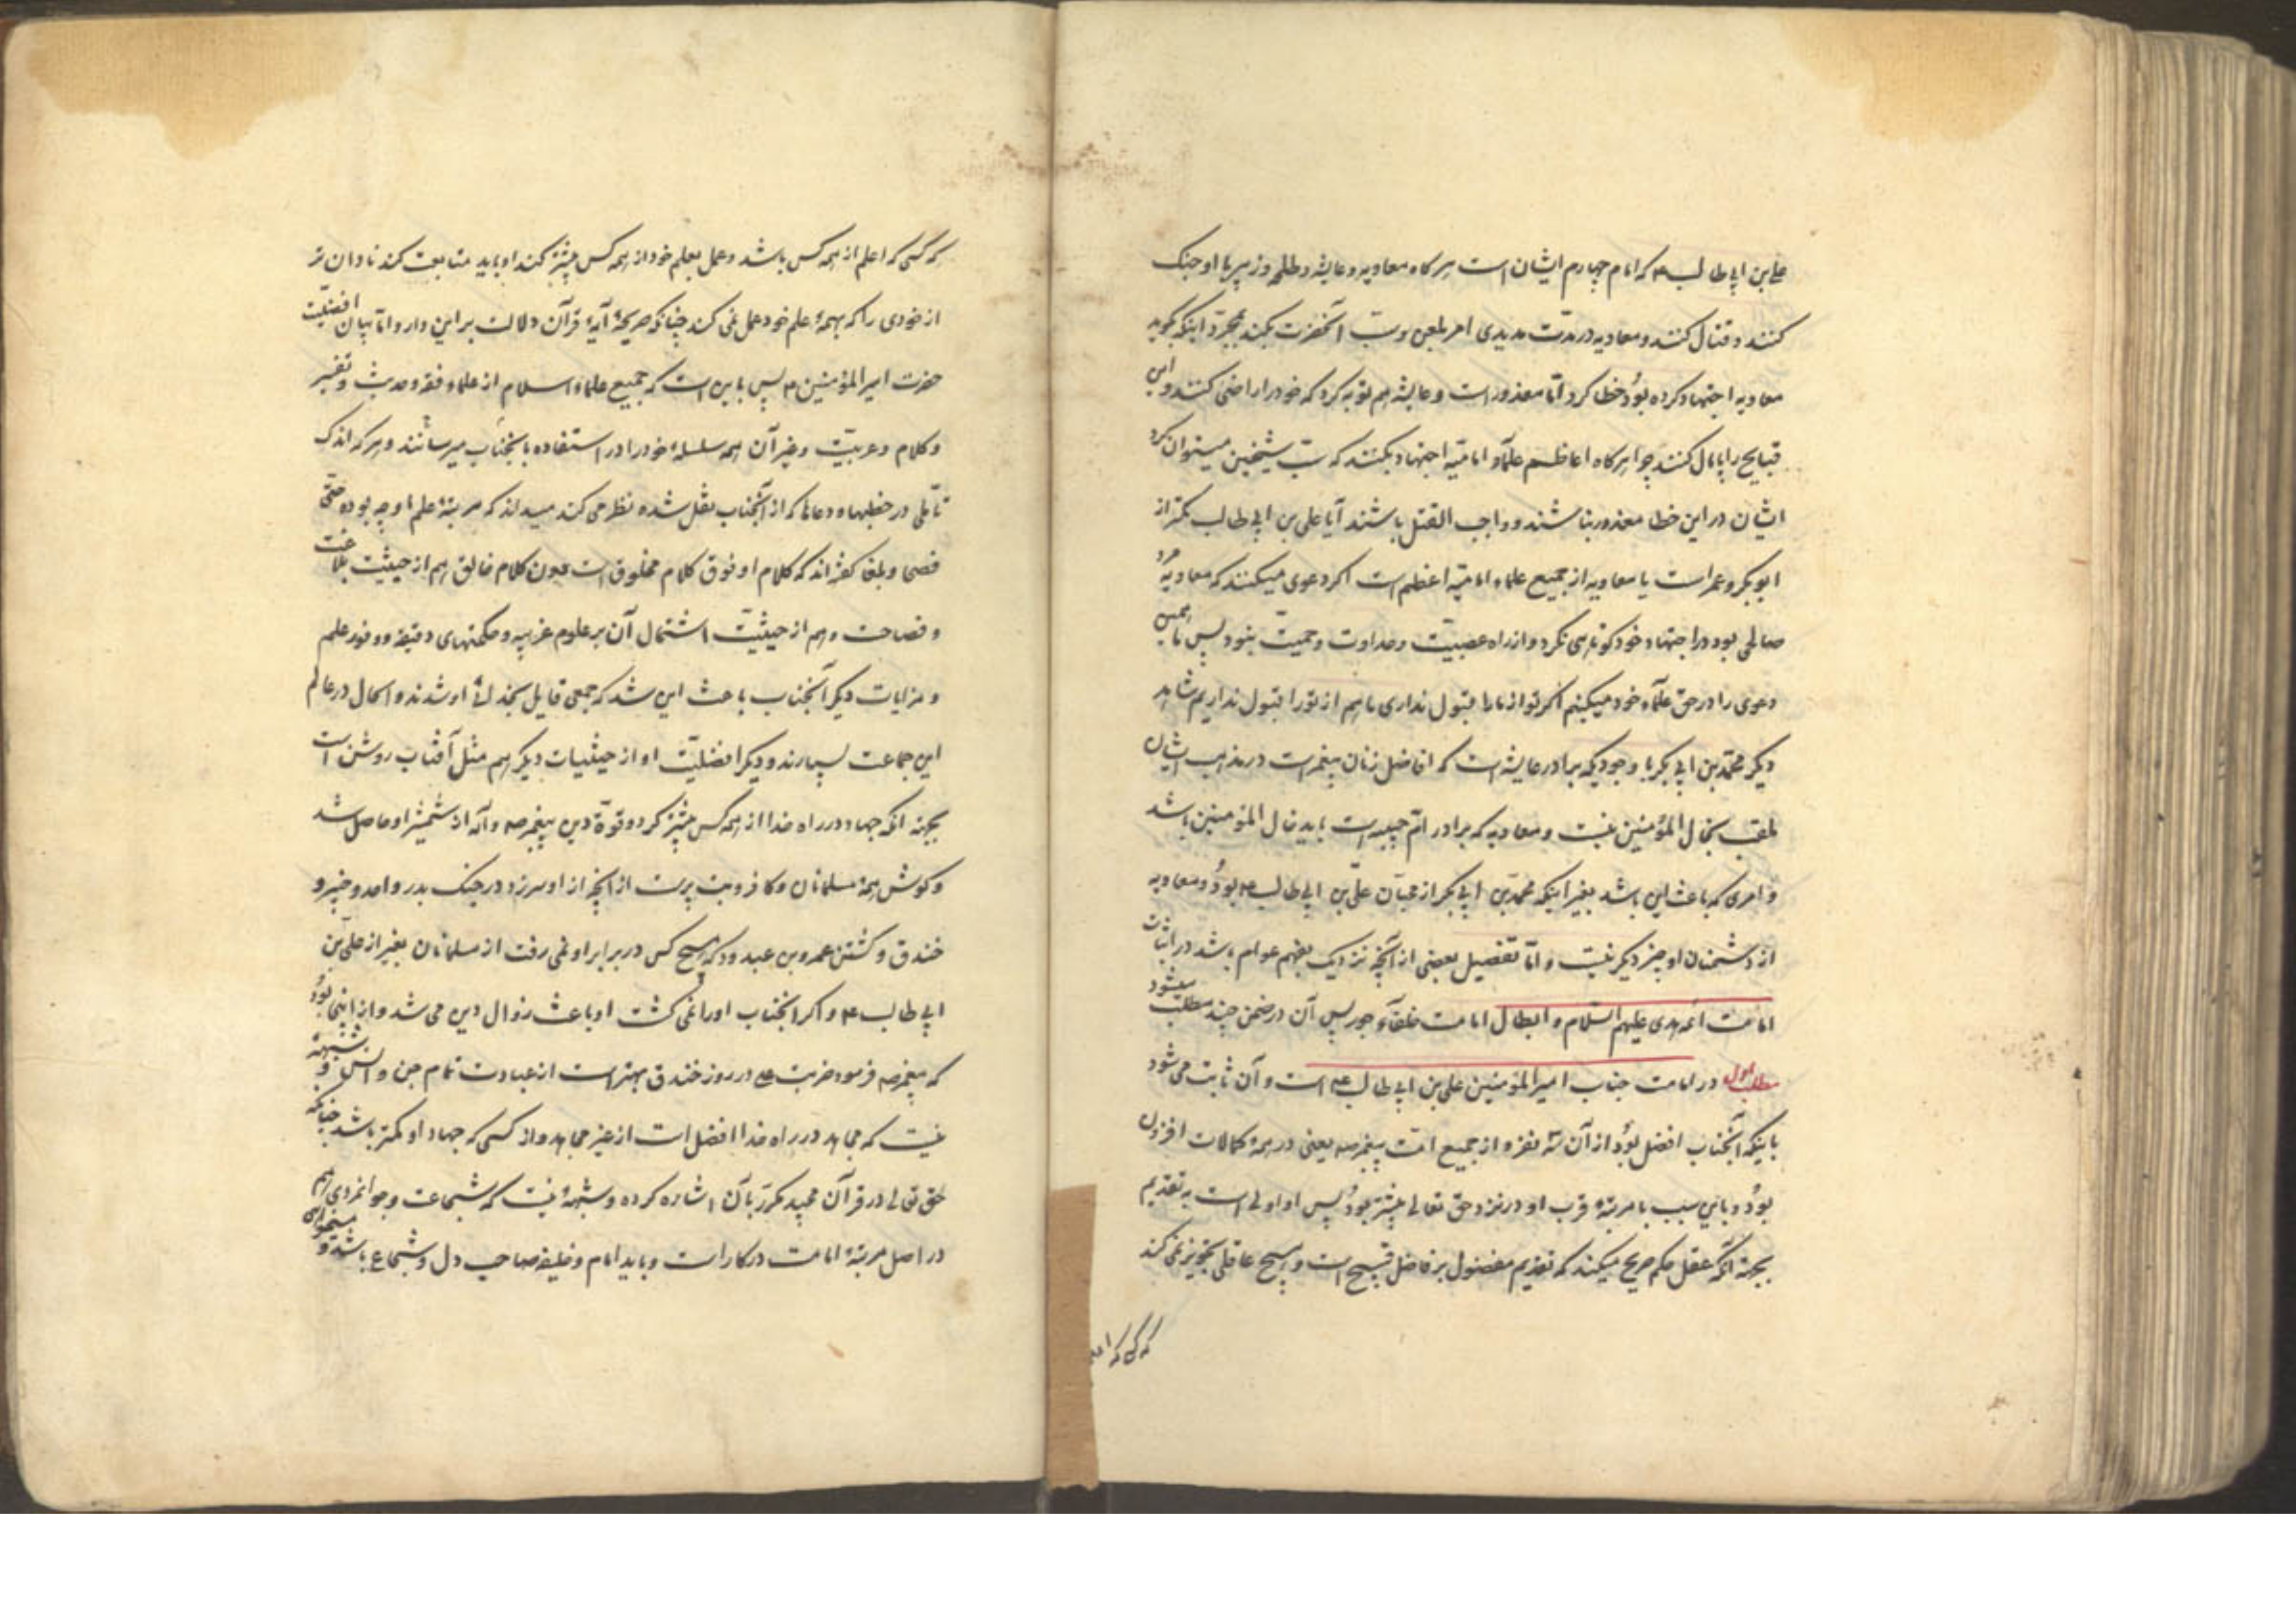 علی بن ابی طالب ع که امام چهارم ایشان است هرگاه معاویه و عایشه و طلحه و زبیر با او جنک
کنند و قتال کنند و معاویه در مدّت مدیدی امر بلعن و سبّ آنحضرت بکند بمجرّد اینکه گوید
معاویه اجتهاد کرده بود خطا کرد امّا معذور است و عایشه هم توبه کرد که خود را راضی کنند و این
قبایح را پامال کنند چرا هرکاه اعاظم علمآء امامیّه اجتهاد بکنند که سبّ شیخین میتوان کرد
ایشان در این خطا معذور نباشند و واجب القتل باشند آیا علی بن ابی طالب کمتر از
ابوبکر و عمر است یا معاویه از جمیع علماء امامیّه اعظم است اکر دعوی میکنند که معاویه مرد
صالحی بود در اجتهاد خود کوتاهی نکرد و از راه عصبیّت و عداوت و حمیّت نبود پس ما همین
دعوی را در حق علمآء خود میکنیم اکر تو از ما را قبول نداری ما هم از تو را قبول نداریم شاهد
دیکر محمّد بن ابی بکر با وجودیکه برادر عایشه است که افاضل زنان پیغمر است در مذهب ایشان
ملقب بخال المؤمنین نیست و معاویه که برادر امّ حبیبه است باید خال المؤمنین باشد
و امری که باعث این باشد بغیر اینکه محمّد بن ابی بکر از محبّان علی بن ابی طالب ع بود و معاویه
از دشمنان او چیز دیکر نیست و امّا تفصیل بعضی از آنچه نزدیک بفهم عوام باشد در اثبات
امامت ائمه هدی علیهم السّلام و ابطال امامت خلفآء جور پس آن در ضمن چند مطلب میشود
مطلب اول در امامت جناب امیر المؤمنین علی بن ابی طالب ع است و آن ثابت می شود
باینکه آنجناب افضل بود از آن سه نفر و از جمیع امّت پیغمر ص یعنی در همۀ کمالات افزون
بود و باین سبب با مرتبۀ قرب او در نزد حق تعالی بیشتر بود پس او اولی است به تقدیم
بجهة آنکه عقل حکم صریح میکند که تقدیم مفضول بر فاضل قبیح است و هیچ عاقلی تجویز نمی کند
که کسی که اعلم
که کسی که اعلم از همه کس باشد و عمل بعلم خود از همه کس بیشتر کند او باید متابعت کند نادان تر
از خودی را که بهمۀ علم خود عمل نمی کند چنانکه صریحۀ آیۀ قرآن دلالت بر این دارد و امّا بیان افضلیّت
حضرت امیر المؤمنین ع پس باین است که جمیع علماء اسلام از علماء فقه و حدیث و تفسیر
و کلام و عربیّت و غیر آن همه سلسلۀ خود را در استفاده بآنجناب میرسانند و هر که اندک
تأمّلی در خطبها و دعاها که از آنجناب نقل شده نظر می کند میداند که مرتبۀ علم او چه بوده حتّی
فصحا و بلغا گفته اند که کلام او فوق کلام مخلوق است و دون کلام خالق هم از حیثیّت بلاغت
و فصاحت و هم از حیثیّت اشتمال آن بر علوم غریبه و حکمتهای دقیقه و وفور علم
و مزایات دیکر آنجناب باعث این شد که جمعی قایل بخدائی او شدند و الحال در عالم
این جماعت بسیارند و دیکر افضلیّت او از حیثیات دیکر هم مثل آفتاب روشن است
بجهة آنکه جهاد در راه خدا از همه کس بیشتر کرد و قوّة دین پیغمر ص و آله از شمشیر او حاصل شد
و کوش همۀ مسلمانان و کافر و بت پرست از آنچه از او سر زد در جنک بدر و احد و خیبر و
خندق و کشتن عمرو بن عبدود که هیچ کس در برابر او نمی رفت از مسلمانان بغیر از علی بن
ابی طالب ع و اکر آنجناب او را نمی کشت او باعث زوال دین می شد و از اینجا بود
که پیغمر ص فرمود ضربت علی در روز خندق بهتر است از عبادت تمام جن و انس و شبهۀ
نیست که مجاهد در راه خدا افضل است از غیر مجاهد و از کسی که جهاد او کمتر باشد چنانکه
حق تعالی در قرآن مجید مکرّر بآن اشاره کرده و شبهۀ نیست که شجاعت و جوانمردی هم
در اصل مرتبۀ امامت درکار است و باید امام و خلیفه صاحب دل و شجاع باشد و